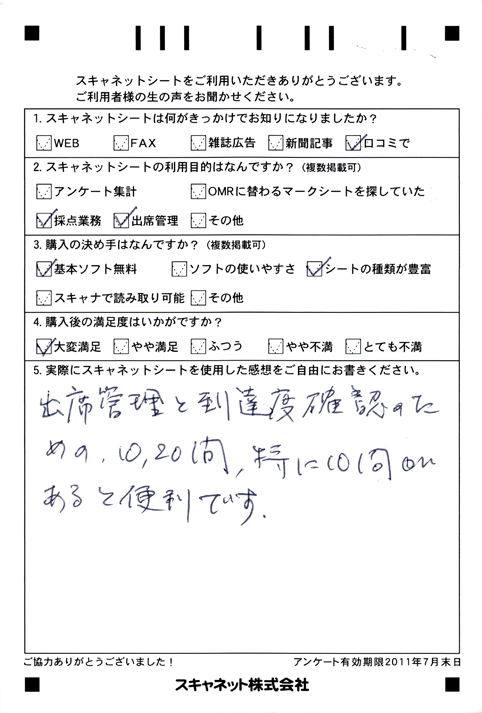 スキャネットシートをご利用いただきありがとうございます。
ご利用者様の生の声をお聞かせください。
1. スキャネットシートは何がきっかけでお知りになりましたか？
WEB FAX 雑誌広告 新聞記事 口コミで
2. スキャネットシートの利用目的はなんですか？（複数掲載可）
アンケート集計 OMRに替わるマークシートを探していた
採点業務 出席管理 その他
3. 購入の決め手はなんですか？（複数掲載可）
基本ソフト無料 ソフトの使いやすさ シートの種類が豊富
スキャナで読み取り可能 その他
4. 購入後の満足度はいかがですか？
大変満足 やや満足 ふつう やや不満 とても不満
5. 実際にスキャネットシートを使用した感想をご自由にお書きください。
出席管理と到達度確認のた
めの、10,20問，特に10問
あると便利です.
ご協力ありがとうございました！ アンケート有効期限2011年7月末日
スキャネット株式会社